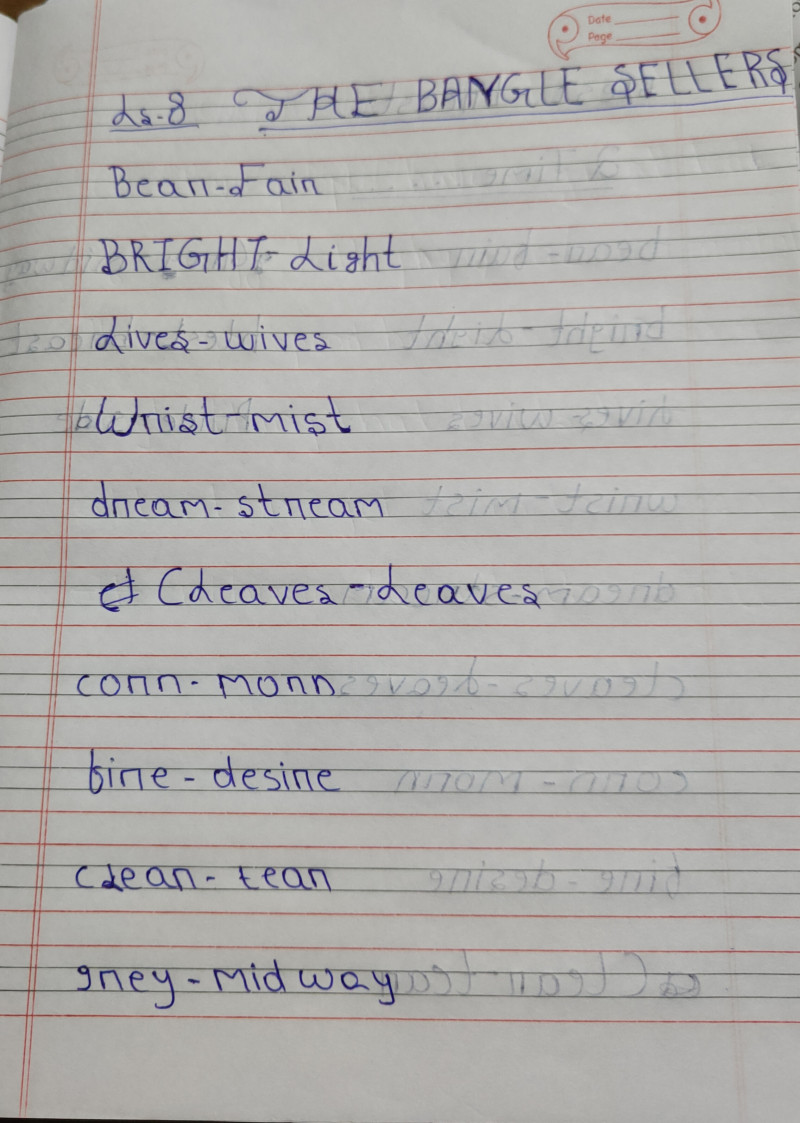 Date
Page
Ls.8 THE BANGLE SELLERS
Bear-Fair
BRIGHT-Light
Lives-wives
Wrist-mist
dream-stream
Cleaves-Leaves
corn-morn
fire-desire
clear-tear
grey-midway